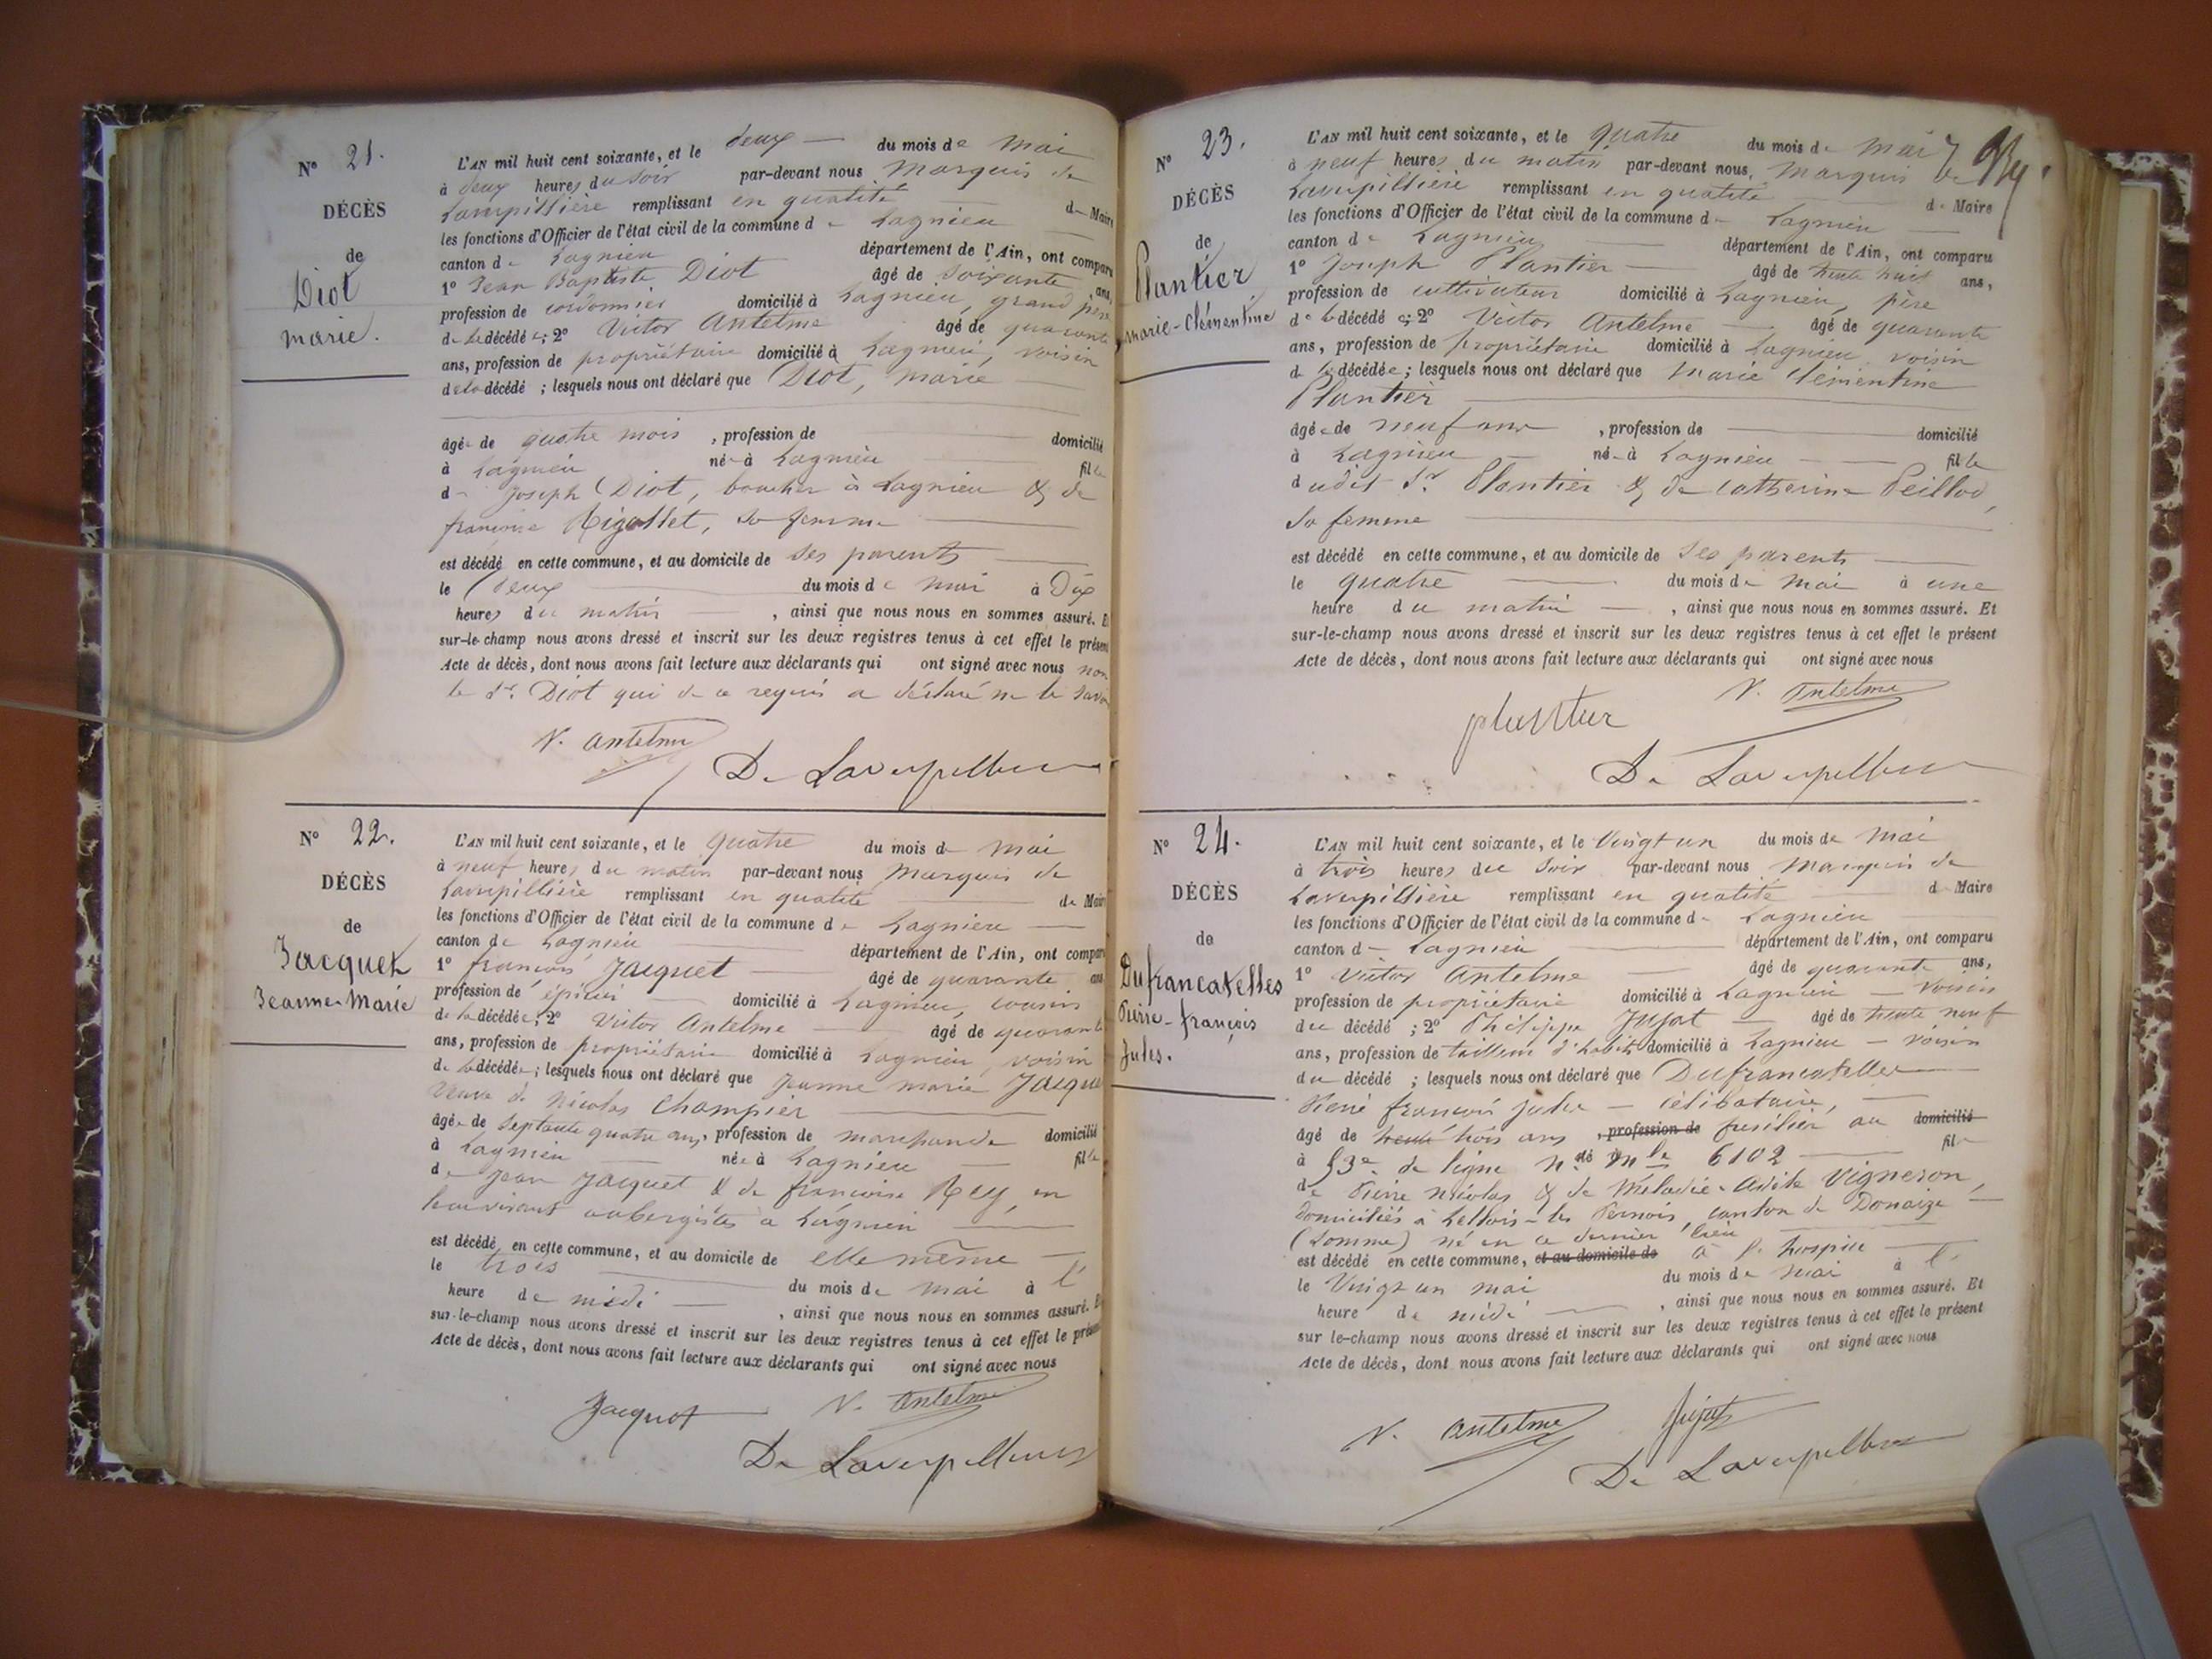 N° 21.
DÉCÈS
de
Diot
marie.
L'AN mil huit cent soixante, et le deux — du mois de mai
à deux heures du soir par-devant nous Marquis de
Lavupillière remplissant en qualité de Maire
les fonctions d'Officier de l'état civil de la commune de Lagnieu
canton de Lagnieu département de l'Ain, ont comparu
1° Jean Baptiste Diot âgé de soixante ans,
profession de cordonnier domicilié à Lagnieu, grand père
de la décédée; 2° Victor Antelme âgé de quarante
ans, profession de propriétaire domicilié à Lagnieu, voisin
de la décédé ; lesquels nous ont déclaré que Diot, marie
âgée de quatre mois , profession de domicilié
à Lagnieu née à Lagnieu fille
de Joseph Diot, boucher à Lagnieu & de
françoise Rigollet, sa femme
est décédé en cette commune, et au domicile de ses parents
le deux du mois de mai à Dix
heures du matin , ainsi que nous nous en sommes assuré. Et
sur-le-champ nous avons dressé et inscrit sur les deux registres tenus à cet effet le présent
Acte de décès, dont nous avons fait lecture aux déclarants qui ont signé avec nous non
le Sr. Diot qui de ce requis a déclaré ne le savoir
V. Antelme
De Lavupillière
N° 22.
DÉCÈS
de
Jacquet
Jeanne-Marie
L'AN mil huit cent soixante, et le quatre du mois de mai
à neuf heures du matin par-devant nous Marquis de
Lavupillière remplissant en qualité de Maire
les fonctions d'Officier de l'état civil de la commune de Lagnieu
canton de Lagnieu département de l'Ain, ont comparu
1° françois Jacquet âgé de quarante ans
profession de épicier domicilié à Lagnieu, cousin
de la décédée; 2° Victor Antelme âgé de quarante
ans, profession de propriétaire domicilié à Lagnieu, voisin
de la décédée; lesquels nous ont déclaré que Jeanne marie Jacquet
veuve de Nicolas Champier
âgée de septante quatre ans, profession de marchande domicilié
à Lagnieu née à Lagnieu fille
de Jean Jacquet & de françoise Rey, en
leur vivant aubergistes à Lagnieu
est décédé en cette commune, et au domicile de elle même
le trois du mois de mai à l'
heure de midi , ainsi que nous nous en sommes assuré. Et
sur-le-champ nous avons dressé et inscrit sur les deux registres tenus à cet effet le présent
Acte de décès, dont nous avons fait lecture aux déclarants qui ont signé avec nous
Jacquet V. Antelme
De Lavupillière
N° 23.
DÉCÈS
de
Plantier
marie-Clémentine
L'AN mil huit cent soixante, et le quatre du mois de mai
à neuf heures du matin par-devant nous, Marquis de
Lavupillière remplissant en qualité de Maire
les fonctions d'Officier de l'état civil de la commune de Lagnieu
canton de Lagnieu département de l'Ain, ont comparu
1° Joseph Plantier âgé de trente huit ans,
profession de cultivateur domicilié à Lagnieu, père
de la décédée; 2° Victor Antelme âgé de quarante
ans, profession de propriétaire domicilié à Lagnieu voisin
de la décédée; lesquels nous ont déclaré que Marie Clémentine
Plantier
âgée de neuf ans , profession de domicilié
à Lagnieu née à Lagnieu fille
dudit Sr. Plantier & de Catherine Peillod,
sa femme
est décédé en cette commune, et au domicile de ses parents
le quatre du mois de mai à une
heure du matin , ainsi que nous nous en sommes assuré. Et
sur-le-champ nous avons dressé et inscrit sur les deux registres tenus à cet effet le présent
Acte de décès, dont nous avons fait lecture aux déclarants qui ont signé avec nous
V. Antelme
plantier
De Lavupillière
N° 24.
DÉCÈS
de
Dufrancatelles
Pierre-françois
Jules.
L'AN mil huit cent soixante, et le Vingt un du mois de mai
à trois heures du soir par-devant nous Marquis de
Lavupillière remplissant en qualité de Maire
les fonctions d'Officier de l'état civil de la commune de Lagnieu
canton de Lagnieu département de l'Ain, ont comparu
1° Victor Antelme âgé de quarante ans,
profession de propriétaire domicilié à Lagnieu — voisin
du décédé ; 2° Philippe Jujat âgé de trente neuf
ans, profession de tailleur d'habits domicilié à Lagnieu — voisin
du décédé ; lesquels nous ont déclaré que Dufrancatelles
Pierre françois Jules — célibataire,
âgé de trente trois ans , profession de fusilier au domicilié
à 53e. de ligne 6102 fils
de Pierre Nicolas & de Vigneron,
domiciliés à canton de
(Somme) né en ce dernier lieu
est décédé en cette commune, et au domicile de à l'hospice
le Vingt un mai du mois de mai à l'
heure de midi , ainsi que nous nous en sommes assuré. Et
sur le-champ nous avons dressé et inscrit sur les deux registres tenus à cet effet le présent
Acte de décès, dont nous avons fait lecture aux déclarants qui ont signé avec nous
V. Antelme Jujat
De Lavupillière